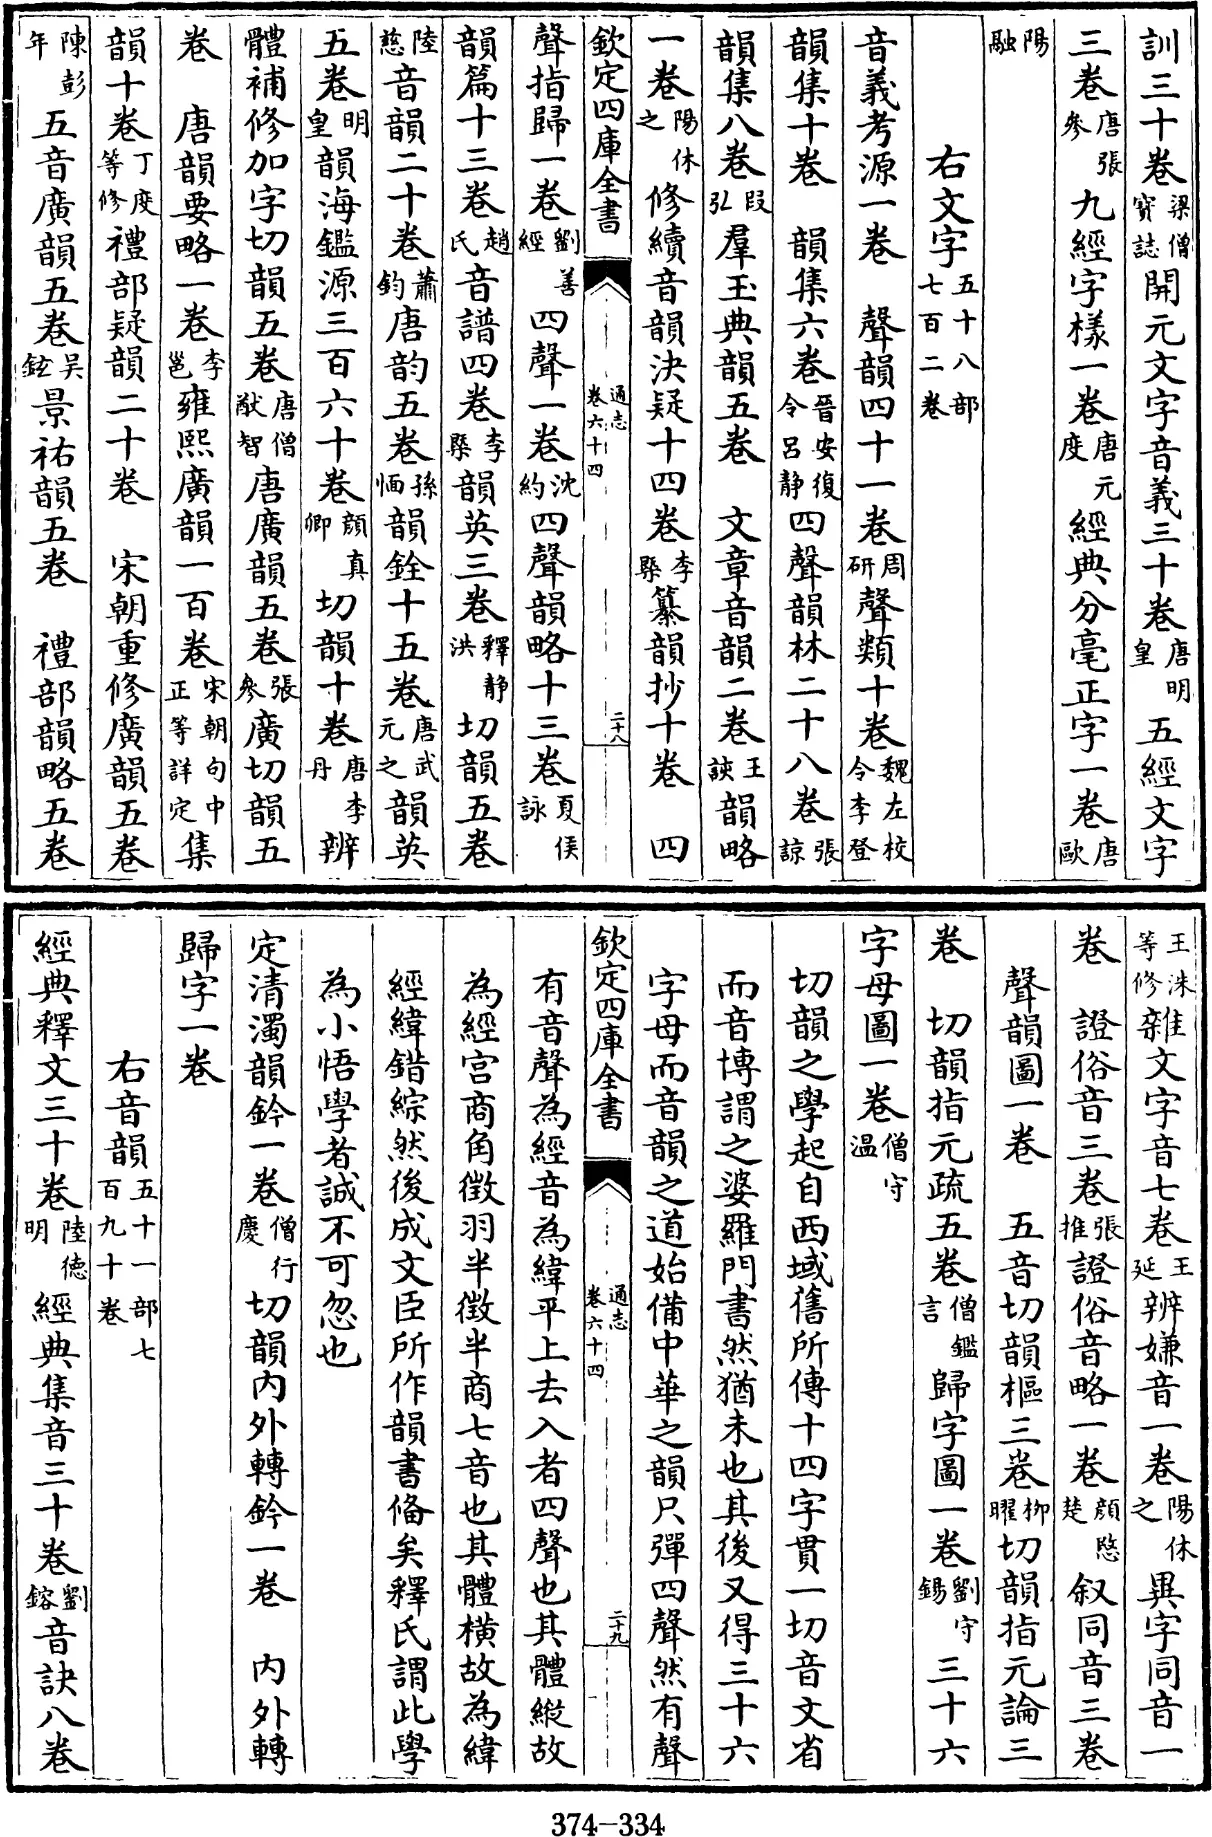 訓三十卷梁僧寳誌開元文字音義三十卷唐明皇五經文字
三卷唐張參九經字樣一卷唐元度經典分毫正字一卷唐歐
陽融
右文字五十八部七百二卷
音義考源一卷 聲韻四十一卷周研聲類十卷魏左校令李登
韻集十卷 韻集六卷晉安復令呂静四聲韻林二十八卷張諒
韻集八卷段弘羣玉典韻五卷 文章音韻二卷王諛韻略
一卷陽休之修續音韻決疑十四卷李槩纂韻抄十卷 四
欽定四庫全書 通志卷六十四 二十八
聲指歸一卷劉善經四聲一卷沈約四聲韻略十三卷夏侯詠
韻篇十三卷趙氏音譜四卷李槩韻英三卷釋静洪切韻五卷
陸慈音韻二十卷蕭鈞唐韵五卷孫愐韻銓十五卷唐武元之韻英
五卷明皇韻海鑑源三百六十卷顔真卿切韻十卷唐李丹辨
體補修加字切韻五卷唐僧猷智唐廣韻五卷張參廣切韻五
卷 唐韻要略一卷李邕雍熙廣韻一百卷宋朝句中正等詳定集
韻十卷丁度等修禮部疑韻二十卷 宋朝重修廣韻五卷
陳彭年五音廣韻五卷吴鉉景祐韻五卷 禮部韻略五卷
王洙等修雜文字音七卷王延辨嫌音一卷陽休之異字同音一
卷 證俗音三卷張推證俗音略一卷顔愍楚叙同音三卷
聲韻圖一卷 五音切韻樞三卷栁曜切韻指元論三
卷 切韻指元疏五卷僧鑑言歸字圖一卷劉守錫三十六
字母圖一卷僧守温
切韻之學起自西域舊所傳十四字貫一切音文省
而音博謂之婆羅門書然猶未也其後又得三十六
字母而音韻之道始備中華之韻只彈四聲然有聲
欽定四庫全書 通志卷六十四 二十九
有音聲為經音為緯平上去入者四聲也其體縱故
為經宫商角徴羽半徴半商七音也其體横故為緯
經緯錯綜然後成文臣所作韻書俻矣釋氏謂此學
為小悟學者誠不可忽也
定清濁韻鈐一卷僧行慶切韻内外轉鈐一卷 内外轉
歸字一卷
右音韻五十一部七百九十卷
經典釋文三十卷陸徳明經典集音三十卷劉鎔音訣八卷
374-334